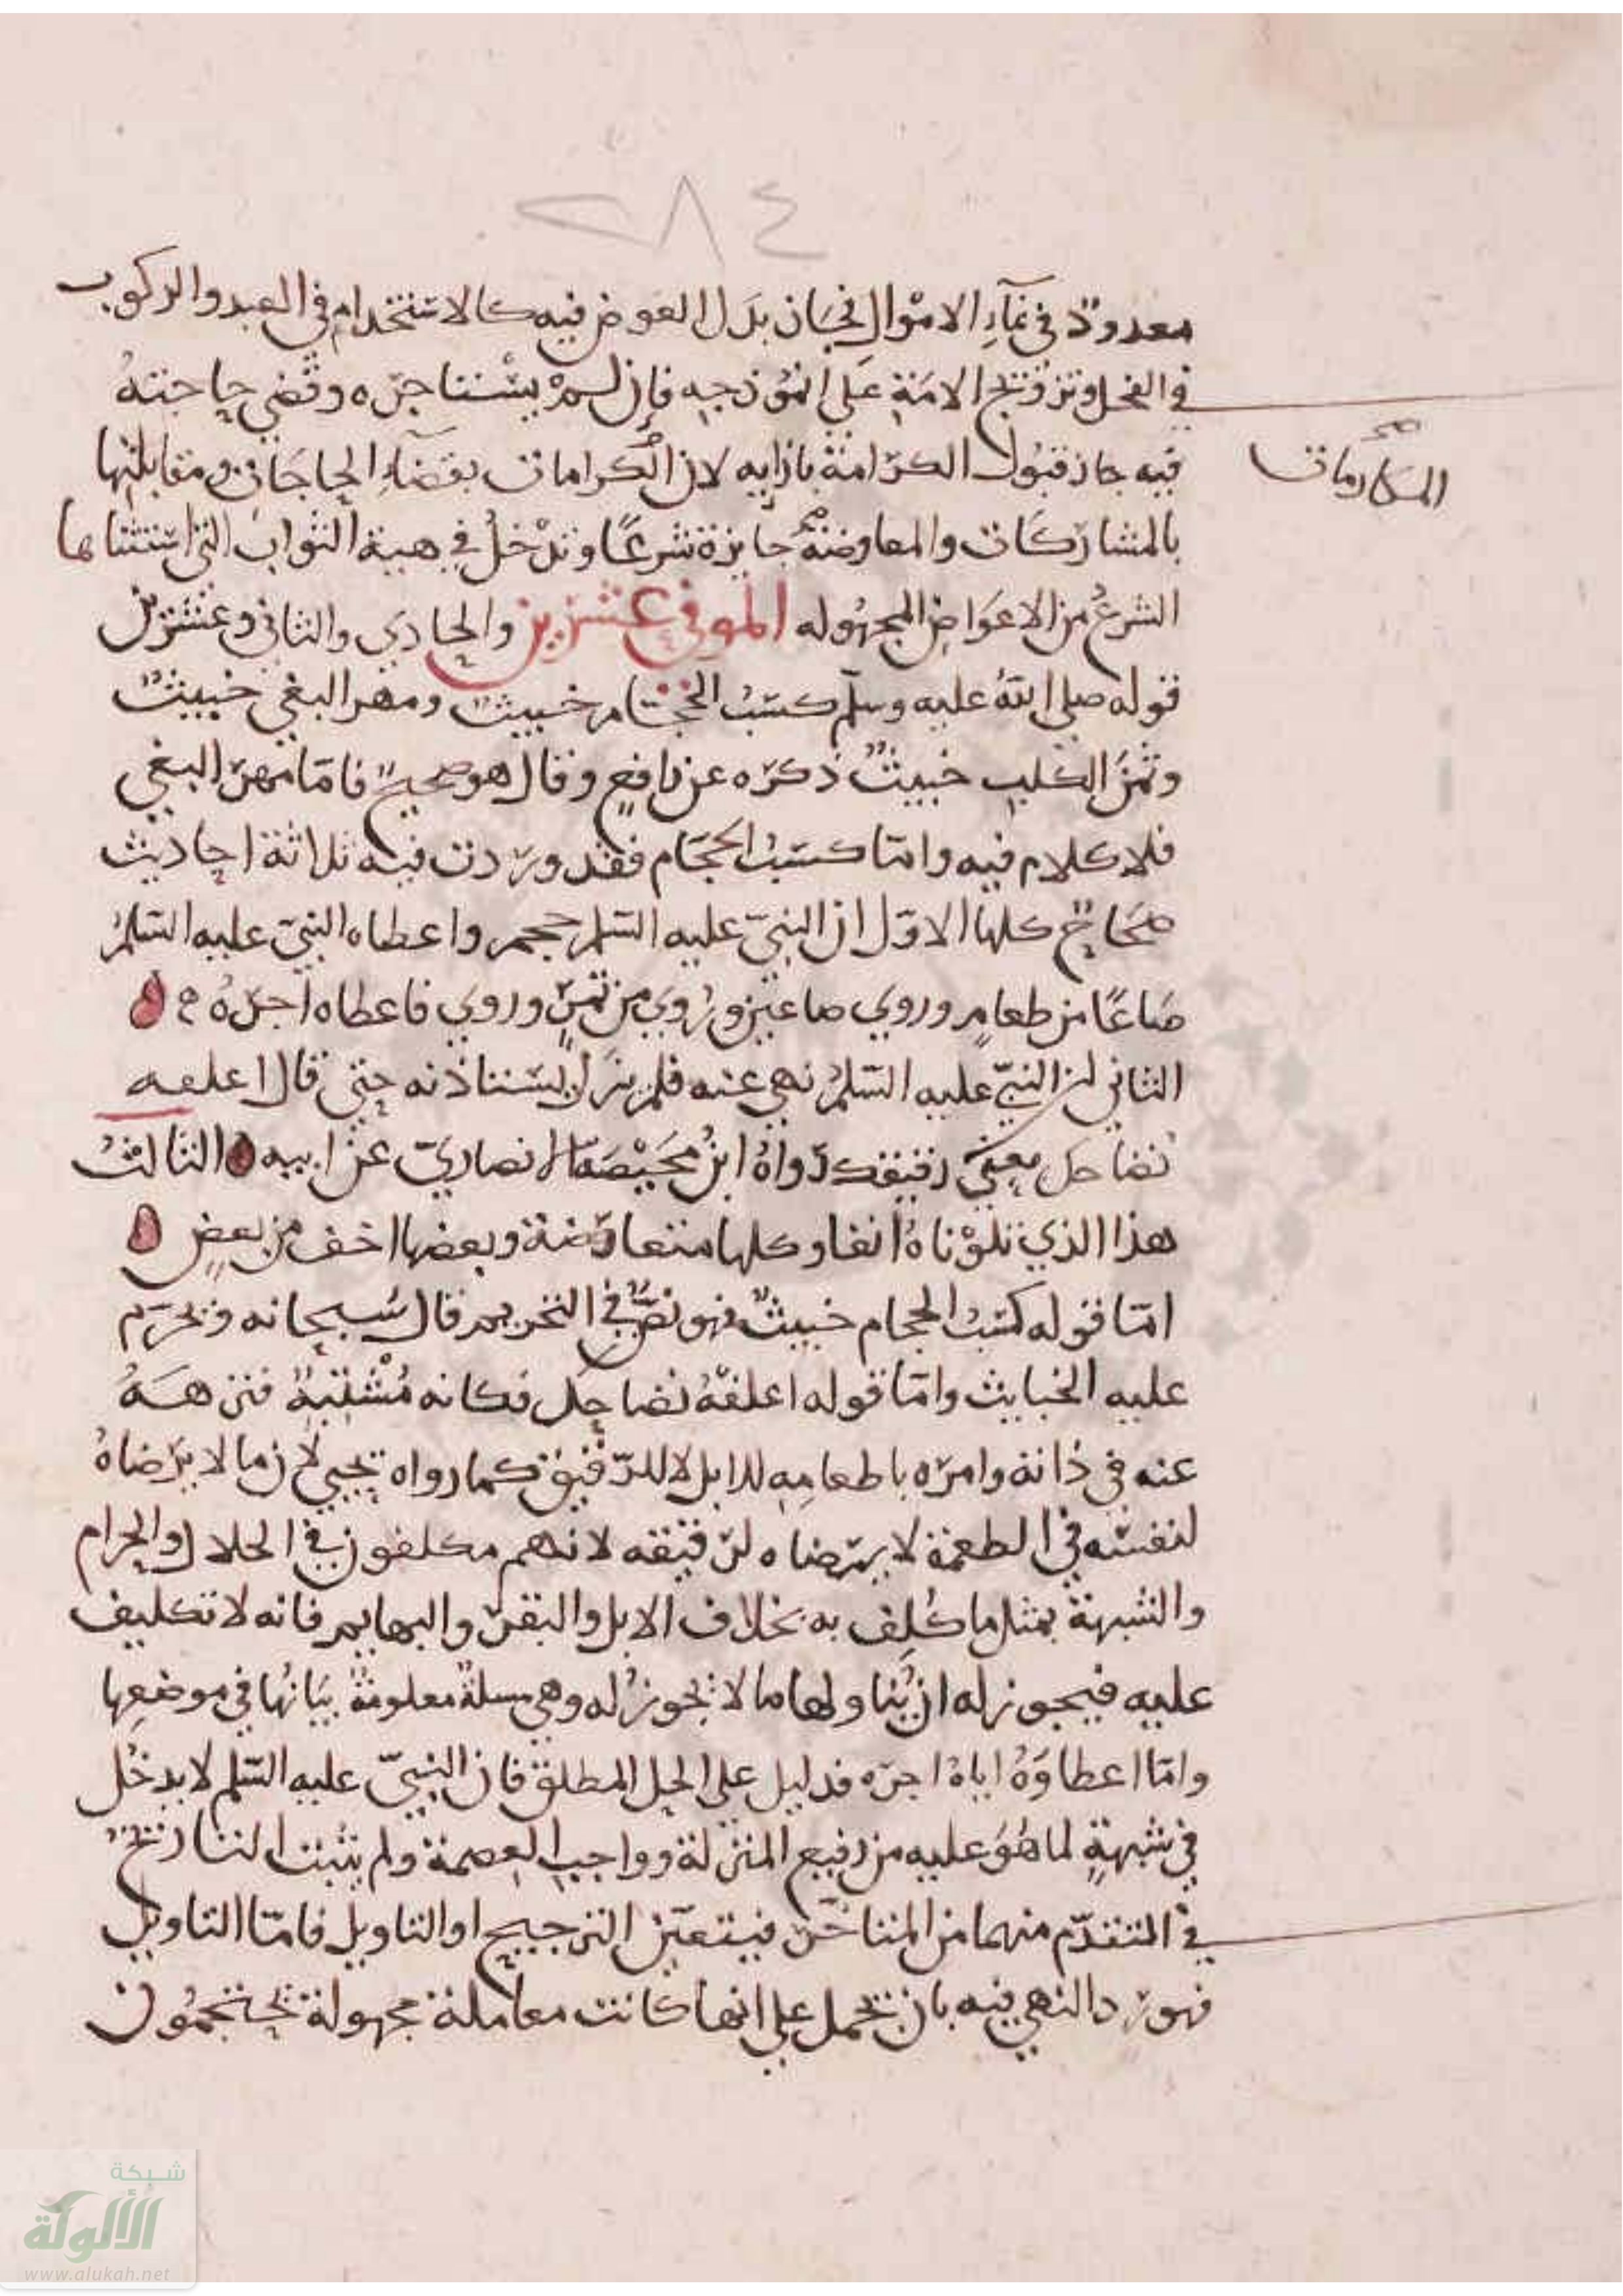 ٢٨٤
معدودٌ في نمآءِ الاموال فجاز بدل العوض فيه كالاستخدام في العبد والركوب
في الفحل وتزويج الامة على انموذجه فإن لم يستاجره وقضى حاجته
فيه جاز قبول الكرامة بازايه لان الكرامات بقضاءِ الحاجات ومقابلتها
المكارمات صح
بالمشاركات والمعاوضة جايزة شرعًا وتدخلُ في هبة الثواب التي استثناها
الشرعُ من الاعواض المجهوله الموفي عشرين والحادي والثاني وعشرين
قوله صلى الله عليه وسلم كسبُ الحجام خبيثٌ ومهر البغي خبيثٌ
وثمنُ الكلبِ خبيثٌ ذكره عن رافعٍ وقال هو صحيحٌ فامّا مهر البغي
فلا كلام فيه وامّا كسبُ الحجام فقد وردت فيه ثلاثة احاديث
صحاحٌ كلها الاول ان النبيّ عليه السّلم حجم واعطاه النبيّ عليه السّلمُ
صَاعًا من طعامٍ وروي صاعين ورُوي من تمرٍ وروي فاعطاه اجرهُ ه
الثاني ان النبيّ عليه السّلمُ نهى عنه فلم يزل يستاذنه حتى قال اعلفه
نُضاحك يعني رقيقك رواهُ ابنُ مُحَيْصَة الانصاريّ عن ابيه الثالثُ
هذا الذي تلوْناهُ انفا وكلها متعارضة وبعضها اخف من بعضٍ
امّا قوله كسبُ الحجام خبيثٌ فهو نصٌّ في التحريم قال سُبحانه ويحرّم
عليه الخبايث وامّا قوله اعلفهُ نُضاحك فكانه مُشْتبهٌ فنزههُ
عنه في ذاته وامره باطعامِهِ للابل لا للرّقيق كما رواه يحيى لان ما لا يرضاهُ
لنفسه في الطعمة لا يرضاه لرقيقه لانهم مكلفون في الحلال والحرام
والشبهة بمثل ما كُلِف به بخلاف الابل والبقر والبهايم فانه لا تكليف
عليه فيجوز له ان يُناولها ما لا يجوزُ له وهي مسلةٌ معلومةٌ بيَانُها في موضعها
وامّا اعطاوَهُ اياهُ اجره فدليل على الحل المطلق فان النبيّ عليه السّلم لا يدخُل
في شبهةٍ لما هُوَ عليه من رفيع المنزلة وواجب العصمة ولم يثبت التاريخُ
في المتقدّم منهما من المتاخر فيتعيّن الترجيح او التاويل فامّا التاويل
فهو ردّ النهي فيه بان يحمل على انها كانت معاملة مجهولة يحتجمُون
شبكة
الألوكة
www.alukah.net